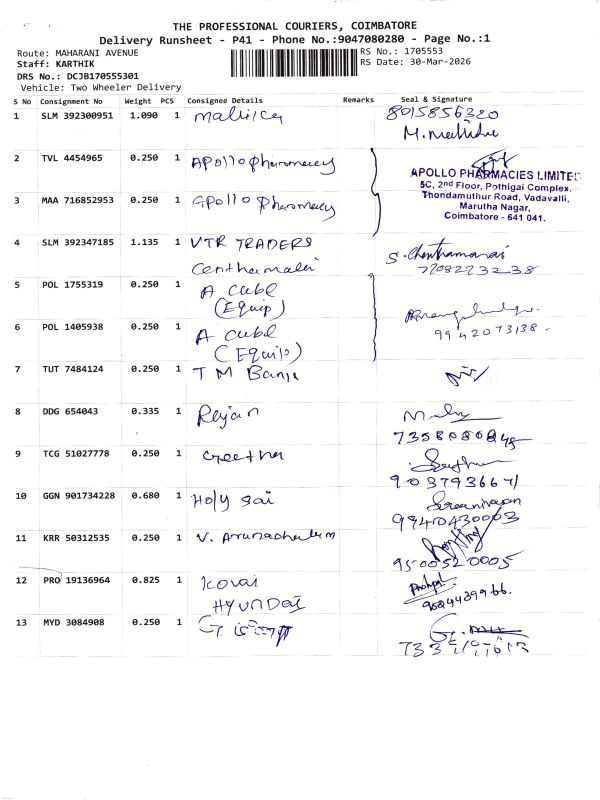 THE PROFESSIONAL COURIERS, COIMBATORE
Delivery Runsheet - P41 - Phone No.:9047080280 - Page No.:1
Route: MAHARANI AVENUE
RS No.: 1705553
Staff: KARTHIK
RS Date: 30-Mar-2026
DRS No.: DCJB170555301
Vehicle: Two Wheeler Delivery
S No Consignment No Weight PCS Consignee Details Remarks Seal & Signature
1 SLM 392300951 1.090 1 8015856320
2 TVL 4454965 0.250 1 Apollo pharmacy
APOLLO PHARMACIES LIMITED
5C, 2nd Floor, Pothigai Complex,
3 MAA 716852953 0.250 1 Apollo pharmacy
Thondamuthur Road, Vadavalli,
Marutha Nagar,
Coimbatore - 641 041.
4 SLM 392347185 1.135 1 VTR TRADERS S. Chenthamarai
5 POL 1755319 0.250 1 A cube
(Equip)
6 POL 1405938 0.250 1 A cube
9942073138
(Equip)
7 TUT 7484124 0.250 1 T M
8 DDG 654043 0.335 1 Rejan
9 TCG 51027778 0.250 1 Geetha
10 GGN 901734228 0.680 1 Holy sai Sreenivasan
9940430003
11 KRR 50312535 0.250 1 V. Arunachalam
9500520005
12 PRO 19136964 0.825 1 Kovai
HYUNDAI
13 MYD 3084908 0.250 1